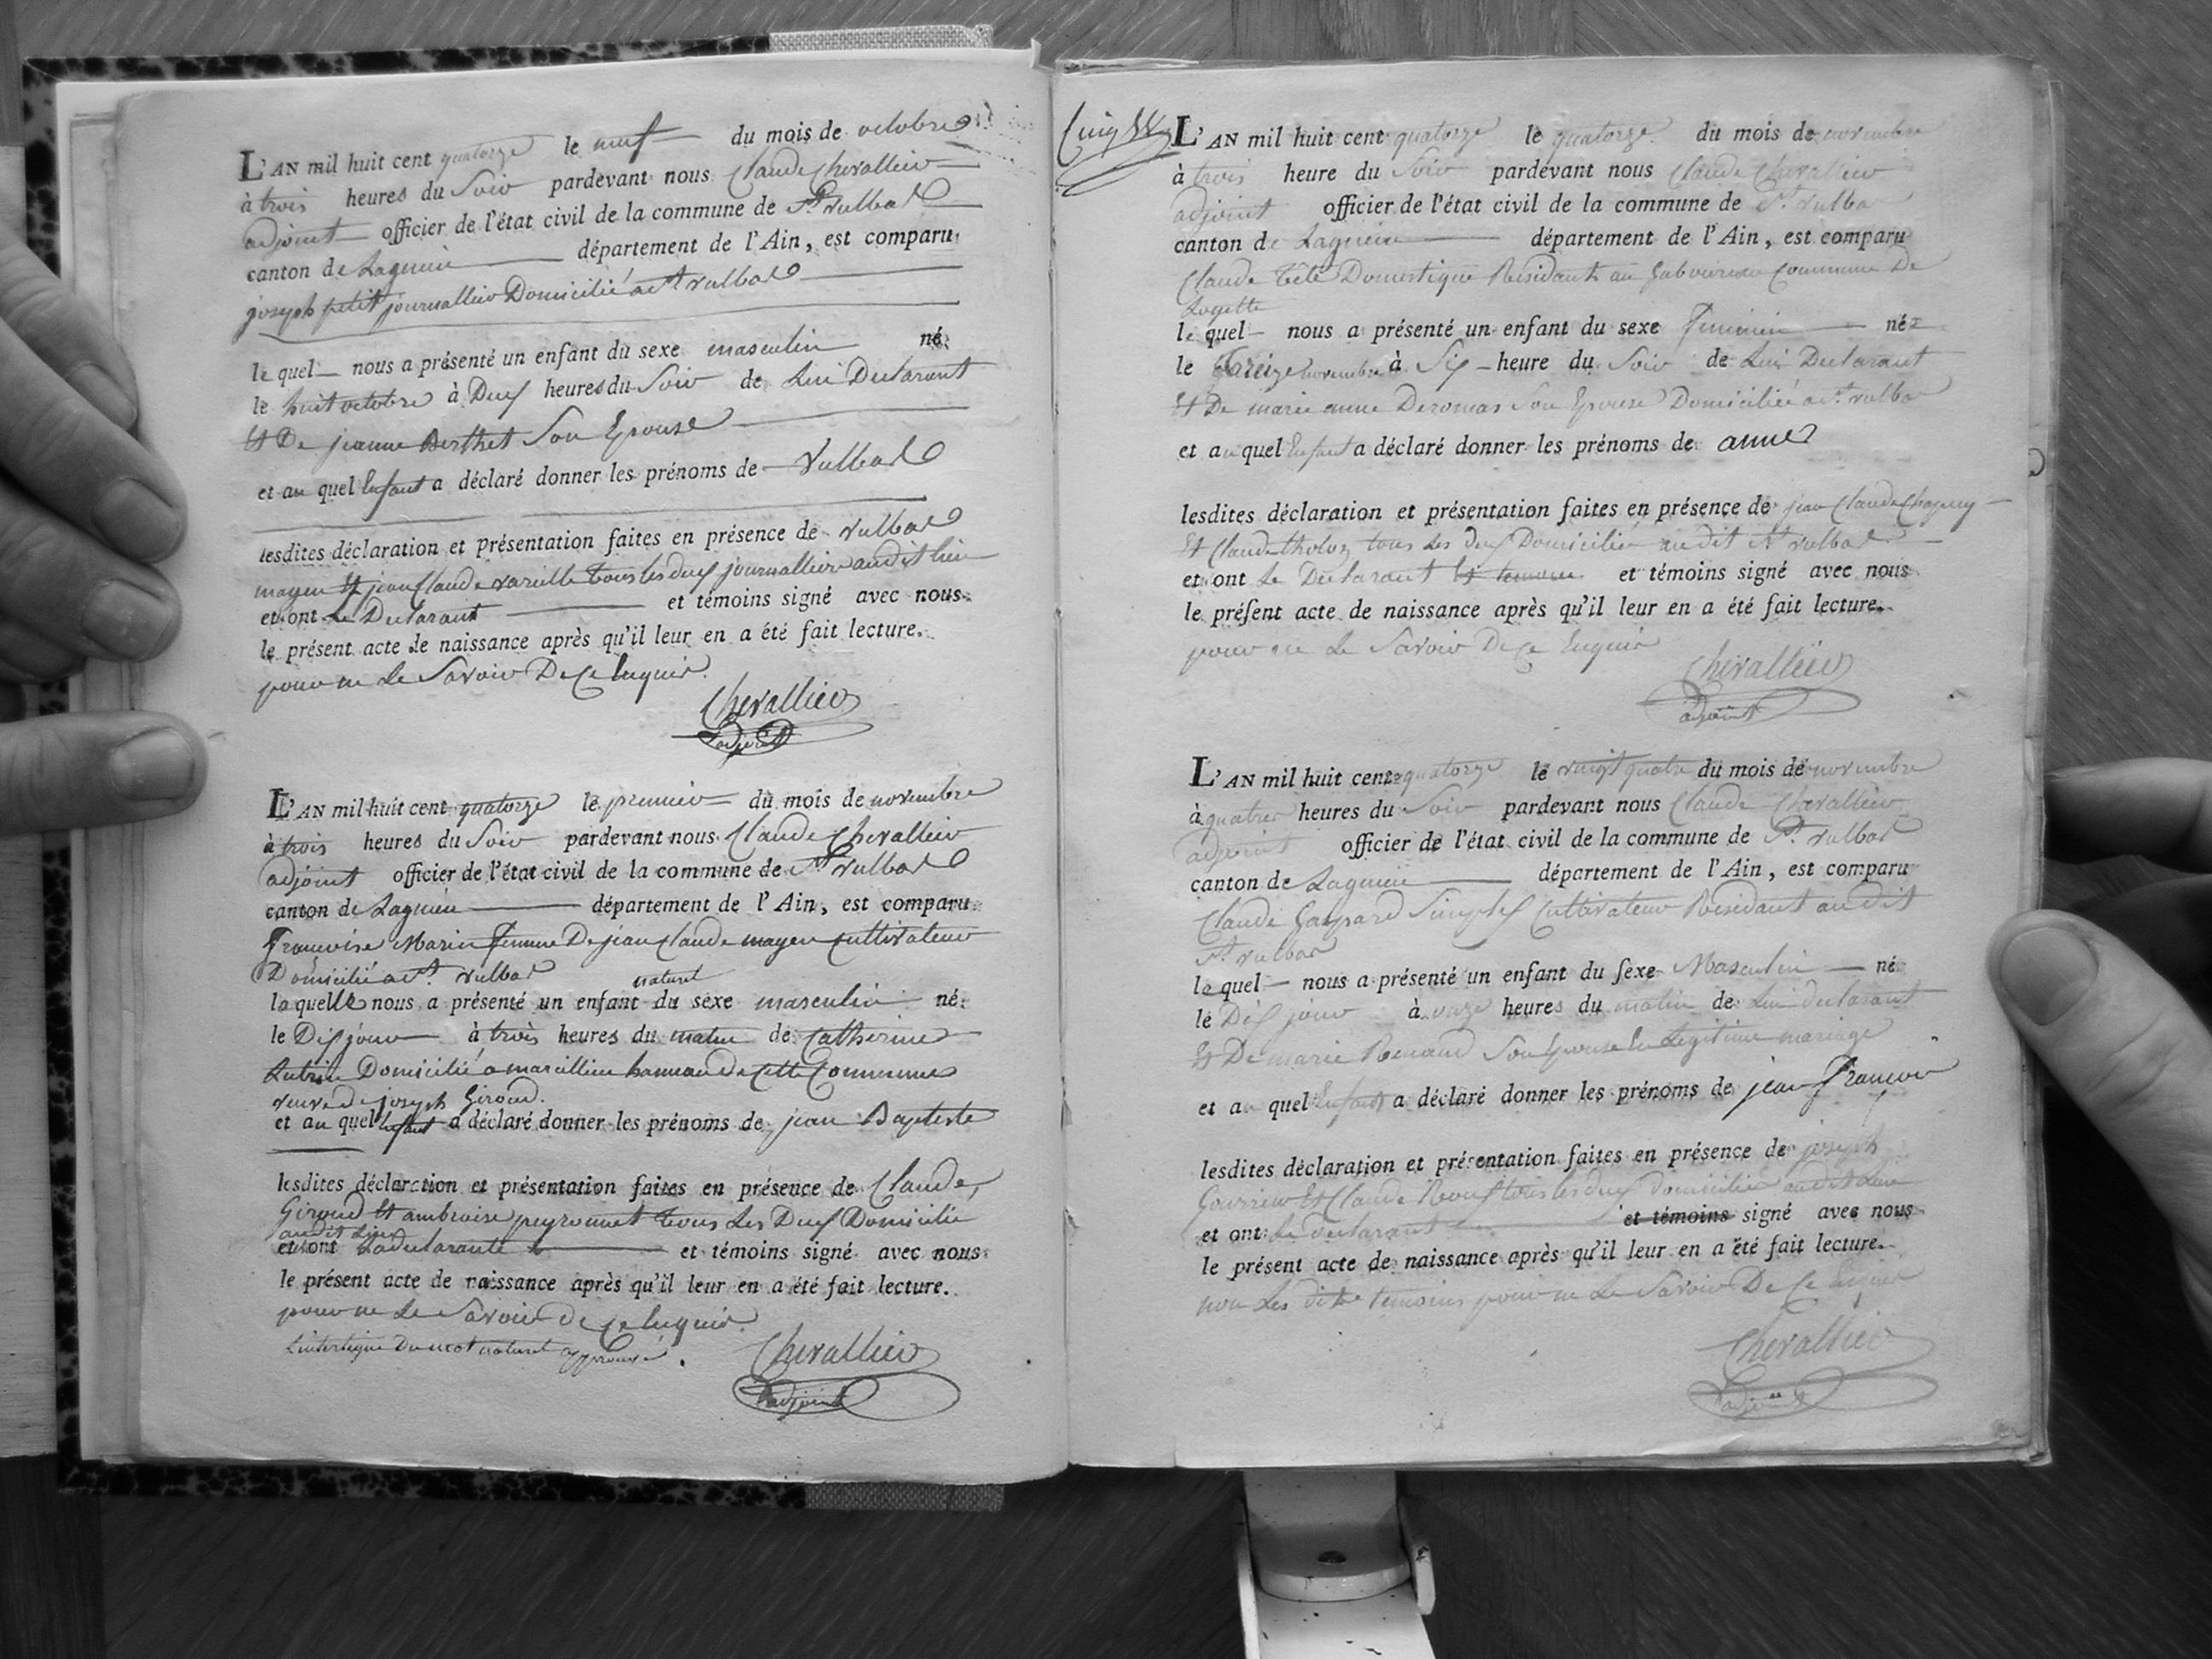 L'AN mil huit cent quatorze le neuf du mois de octobre
à trois heures du Soir pardevant nous Claude Chevallier
adjoint officier de l'état civil de la commune de St. vulbas
canton de Lagnieu département de l'Ain, est comparu
joseph petit journallier Domicilié a St vulbas
le quel nous a présenté un enfant du sexe masculin né
le huit octobre à Deux heures du Soir de Lui Declarant
Et De jeanne Berthet Son Epouse
et au quel Enfant a déclaré donner les prénoms de Vulbas
lesdites déclaration et présentation faites en présence de vulbas
mayen Et jean Claude varielle tous les deux journalliers audit lieu
et ont Le Declarant et témoins signé avec nous
le présent acte de naissance après qu'il leur en a été fait lecture.
pour ne Le Savoir De Ce Enquis.
Chevallier
adjoint
L'AN mil huit cent quatorze le premier du mois de novembre
à trois heures du Soir pardevant nous Claude Chevallier
adjoint officier de l'état civil de la commune de St vulbas
canton de Lagnieu département de l'Ain, est comparu
Françoise Marin femme De jean Claude mayen cultivateur
Domicilié a St. vulbas
naturel
laquelle nous a présenté un enfant du sexe masculin né
le Dix jour à trois heures du matin de Catherine
Domicilié a marcillieu hammau de cette Commune
veuve de joseph Giroud.
et au quel Enfant a déclaré donner les prénoms de jean Baptiste
lesdites déclaration et présentation faites en présence de Claude
Giroud Et ambroise peyronnet tous Les Deux Domicilié
audit Lieu
et ont La declarante et témoins signé avec nous
le présent acte de naissance après qu'il leur en a été fait lecture.
pour ne Le Savoir de Ce Enquis.
L'interligne Du mot naturel approuvé.
Chevallier
adjoint
L'AN mil huit cent quatorze le quatorze du mois de novembre
à trois heure du Soir pardevant nous Claude Chevallier
adjoint officier de l'état civil de la commune de St. vulbas
canton de Lagnieu département de l'Ain, est comparu
Claude Tété Domestique Residant au Gabourreau Commune De
Loyette
le quel nous a présenté un enfant du sexe Feminin né
le treize novembre à Six heure du Soir de Lui Declarant
Et De marie anne Deromas Son Epouse Domiciliée a St. vulbas
et au quel Enfant a déclaré donner les prénoms de anne
lesdites déclaration et présentation faites en présence de jean Claude
Et Claude tholoz tous Les deux Domicilié audit St vulbas
et ont Le Declarant et témoins signé avec nous
le présent acte de naissance après qu'il leur en a été fait lecture.
pour ne Le Savoir De Ce Enquis
Chevallier
adjoint
L'AN mil huit cent quatorze le vingt quatre du mois de novembre
à quatre heures du Soir pardevant nous Claude Chevallier
adjoint officier de l'état civil de la commune de St. vulbas
canton de Lagnieu département de l'Ain, est comparu
Claude Gaspard Simplex Cultivateur Residant audit
St. vulbas
le quel nous a présenté un enfant du sexe Masculin né
le Dix jour à onze heures du matin de Lui declarant
Et De marie Renaud Son Epouse En Legitime mariage
et au quel Enfant a déclaré donner les prénoms de jean François
lesdites déclaration et présentation faites en présence de joseph
Et Claude tous les deux domicilié audit Lieu
et ont Le declarant et témoins signé avec nous
le présent acte de naissance après qu'il leur en a été fait lecture.
non Les dits temoins pour ne Le Savoir De Ce Enquis
Chevallier
adjoint